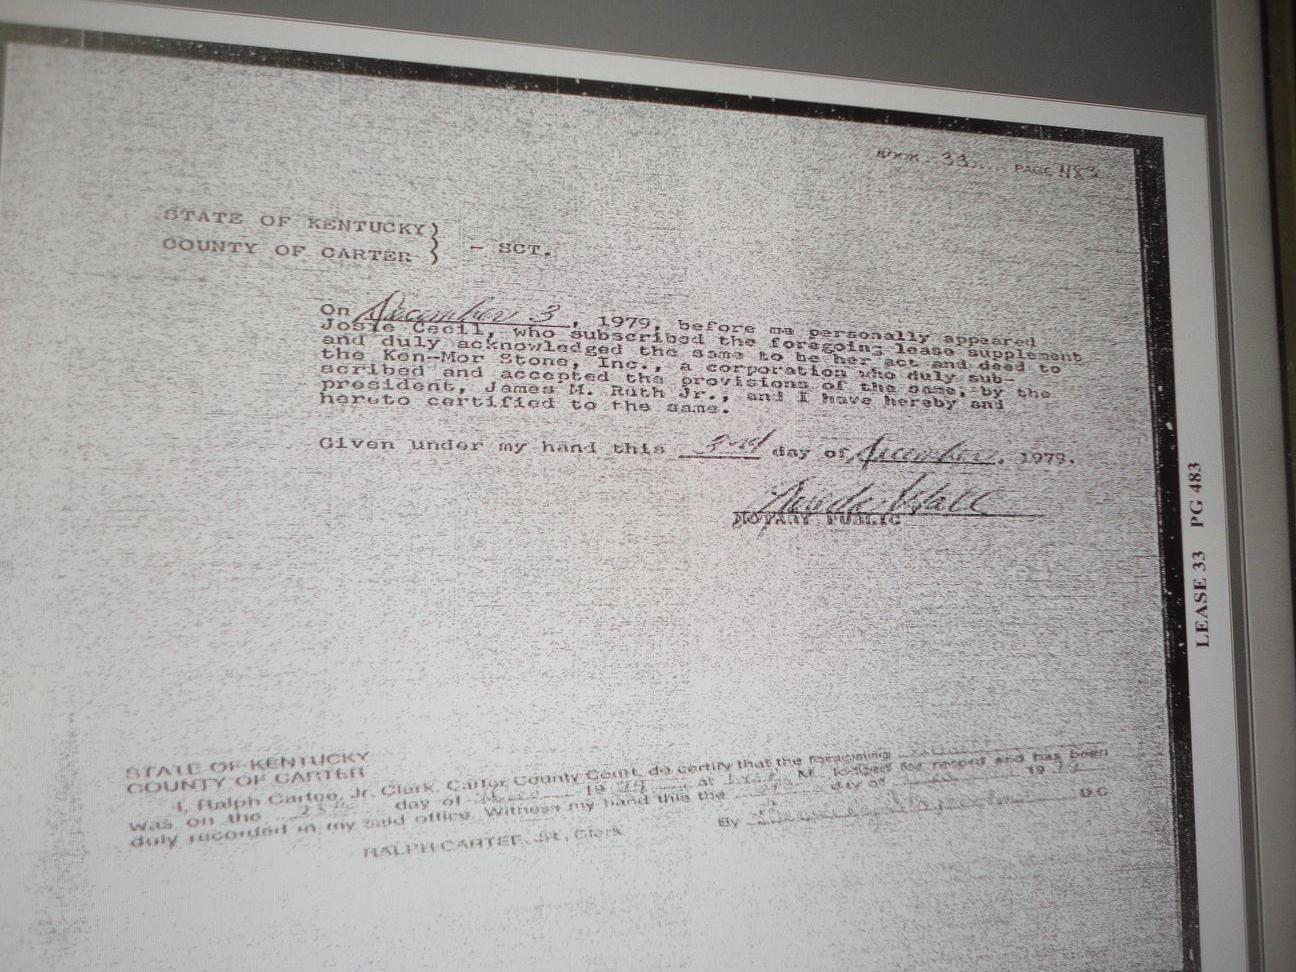 BOOK 33 PAGE 483
STATE OF KENTUCKY)
COUNTY OF CARTER ) - SCT.
On December 3, 1979, before me personally appeared
Josie Cecil, who subscribed the foregoing lease supplement
and duly acknowledged the same to be her act and deed to
the Ken-Mor Stone, Inc., a corporation who duly sub-
scribed and accepted the provisions of the same, by the
president, James M. Ruth Jr., and I have hereby and
hereto certified to the same.
Given under my hand this 3rd day of December, 1979.
NOTARY PUBLIC
LEASE 33 PG 483
STATE OF KENTUCKY
COUNTY OF CARTER
I, Ralph Carter, Jr. Clerk, Carter County Court, do certify that the foregoing
was on the day of 19 at M. lodged for record and has been
duly recorded in my said office. Witness my hand this the day of 19
RALPH CARTER, Jr., Clerk By D.C.